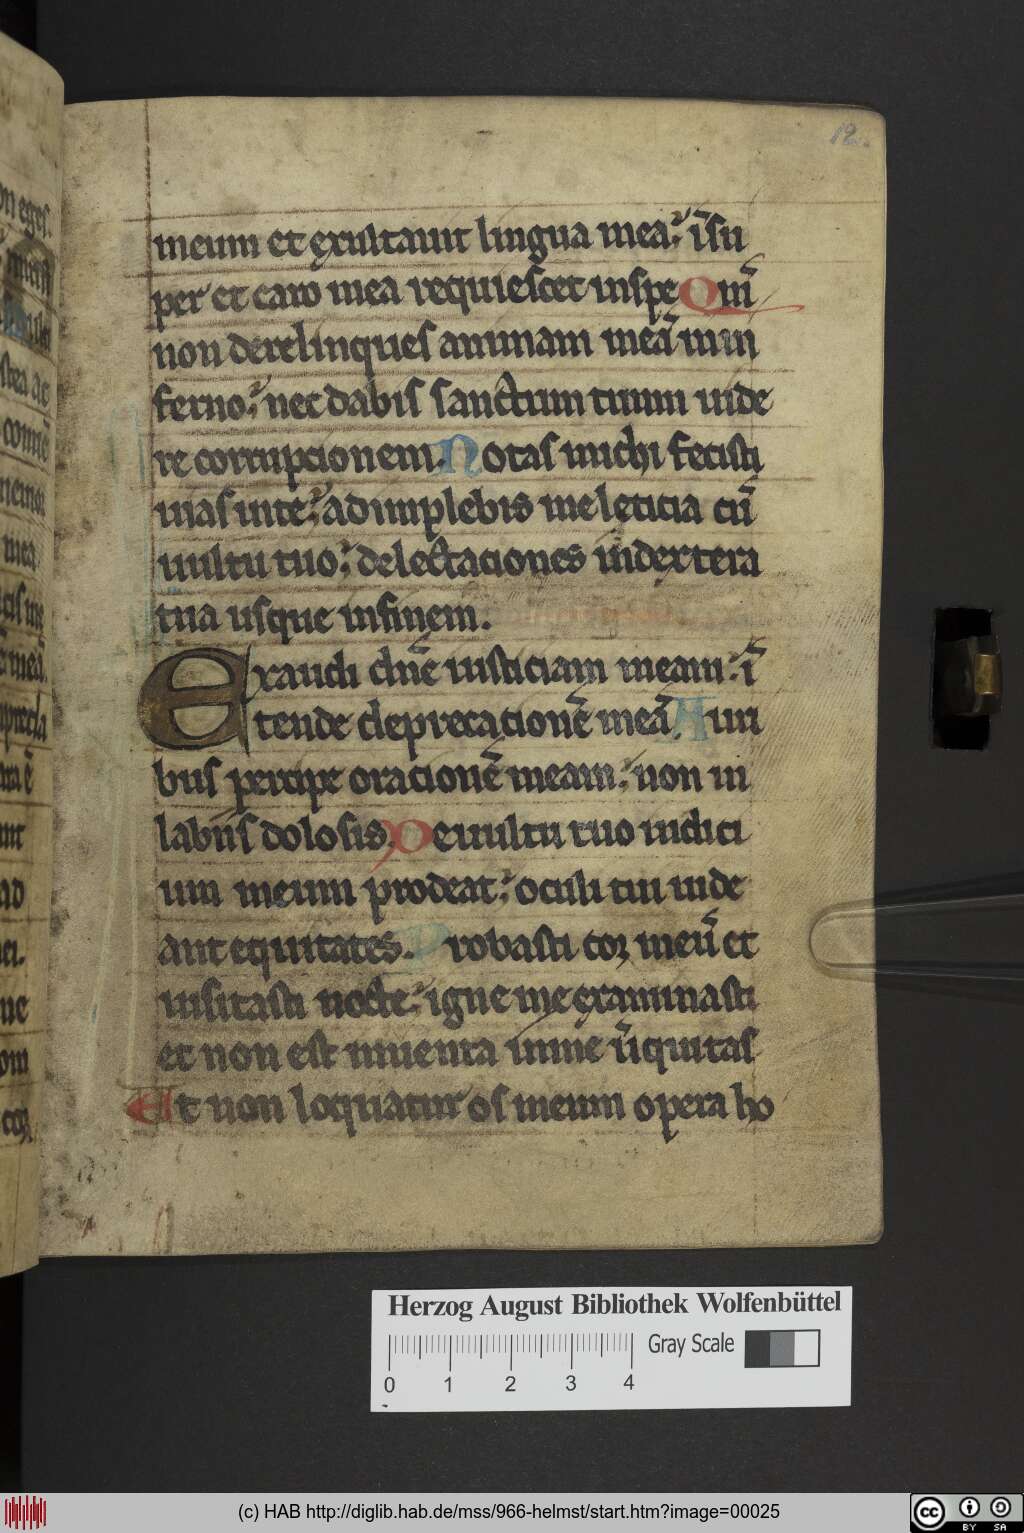 12.
meum et exultauit lingua mea; īsu
per et caro mea requiescet inspe Qm̄
non derelinques animam meā inin
ferno; nec dabis sanctum tuum uide
re corrupcionem. Notas michi fecisti
uias uite; adimplebis me leticia cū
uultu tuo; delectaciones indextera
tua usque infinem.
Exaudi dn̄e iusticiam meam; ī
tende deprecacionē meā. Auri
bus percipe oracionē meam; non in
labiis dolosis. De uultu tuo iudici
um meum prodeat; oculi tui uide
ant equitates. Probasti coꝛ meū et
uisitasti nocte; igne me examinasti
et non est inuenta inme īiquitas
Ut non loquatur os meum opera ho
Herzog August Bibliothek Wolfenbüttel
Gray Scale
0 1 2 3 4
(c) HAB http://diglib.hab.de/mss/966-helmst/start.htm?image=00025
cc BY SA